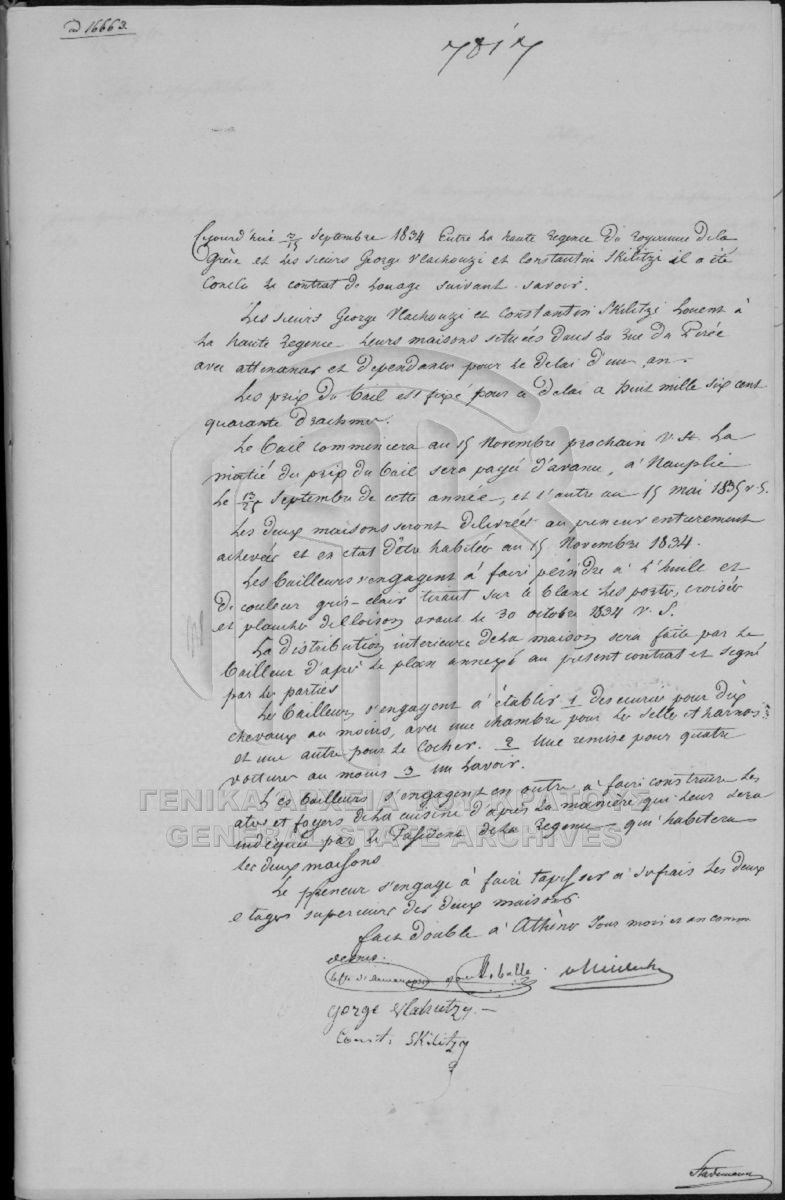 ad 16663.
7817
Ajourd'hui 3/15 Septembre 1834 Entre La haute Regence du Royaume de la
Grèce et Les sieurs George Vlachouzi et Constantin Skilitzi il a été
Conclu Le contrat de Louage suivant. savoir.
Les sieurs George Vlachouzi et Constantin Skilitzi Louent à
La haute Regence Leurs maisons situées dans La Rue du Pirée
avec attenances et dependances pour Le delai d'un an.
Les prix du bail est fixé pour ce delai a huit mille six cent
quarante Drachmes.
Le bail commencera au 15 Novembre prochain V. St. La
moitié du prix du bail sera payée d'avance, à Nauplie
Le 13/25 Septembre de cette année, et l'autre au 15 mai 1835 v. S.
Les deux maisons seront delivrées au preneur entierement
achevées et en etat d'être habitées au 15 Novembre 1834.
Les bailleurs s'engagent à faire peindre à L'huile et
De couleur gris-clair tirant sur Le blanc Les portes, croisées
et planches de cloison avant Le 30 octobre 1834 v. S.
La distribution interieure de La maison sera faite par Le
bailleur d'après Le plan annexé au present contrat et signé
par Les parties
Les bailleurs s'engagent à établir 1 des ecuries pour dix
chevaux au moins, avec une chambre pour Les selles et harnois
et une autre pour Le Cocher. 2 Une remise pour quatre
voitures au moins 3 un Lavoir.
Les bailleurs s'engagent en outre à faire construire Les
atres et foyers de La cuisine d'après La manière qui Leur sera
indiquée par Le President de La Regence qui habitera
Les deux maisons
Le preneur s'engage à faire tapisser à ses frais Les deux
etages superieurs des deux maisons.
fait double à Athènes Jour mois et an comme
dessus.
George Vlahutzy
Const. Skilitzy
Stademann
ΓΕΝΙΚΑ ΑΡΧΕΙΑ ΤΟΥ ΚΡΑΤΟΥΣ
GENERAL STATE ARCHIVES